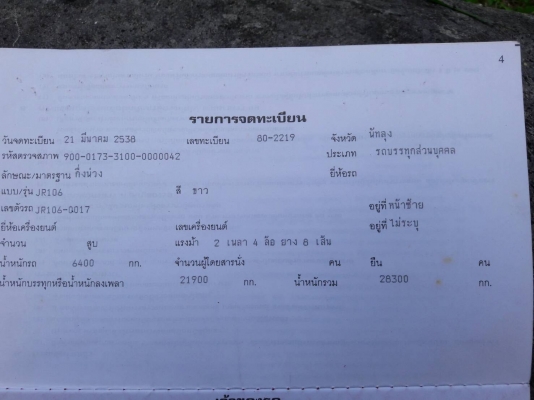 4
รายการจดทะเบียน
วันจดทะเบียน 21 มีนาคม 2538 เลขทะเบียน 80-2219 จังหวัด พัทลุง
รหัสตรวจสภาพ 900-0173-3100-0000042 ประเภท รถบรรทุกส่วนบุคคล
ลักษณะ/มาตรฐาน กึ่งพ่วง ยี่ห้อรถ
แบบ/รุ่น JR106 สี ขาว
เลขตัวรถ JR106-0017 อยู่ที่ หน้าซ้าย
ยี่ห้อเครื่องยนต์ เลขเครื่องยนต์ อยู่ที่ ไม่ระบุ
จำนวน สูบ แรงม้า 2 เพลา 4 ล้อ ยาง 8 เส้น
น้ำหนักรถ 6400 กก. จำนวนผู้โดยสารนั่ง คน ยืน คน
น้ำหนักบรรทุกหรือน้ำหนักลงเพลา 21900 กก. น้ำหนักรวม 28300 กก.